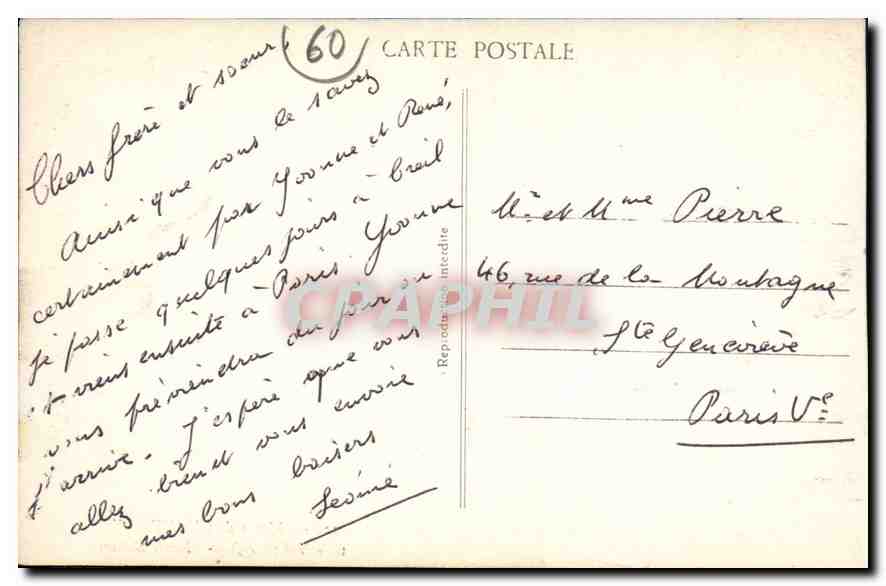 60
CARTE POSTALE
Chers frère et soeur,
Ainsi que vous le savez
certainement par Yvonne et René,
je passe quelques jours à Creil
et viens ensuite à Paris. Yvonne
vous préviendra du jour où
j'arrive. J'espère que vous
allez bien et vous envoie
mes bons baisers
Reproduction interdite
Mr et Mme Pierre
46, rue de la Montagne
Ste Geneviève
Paris Ve
CPAPHIL